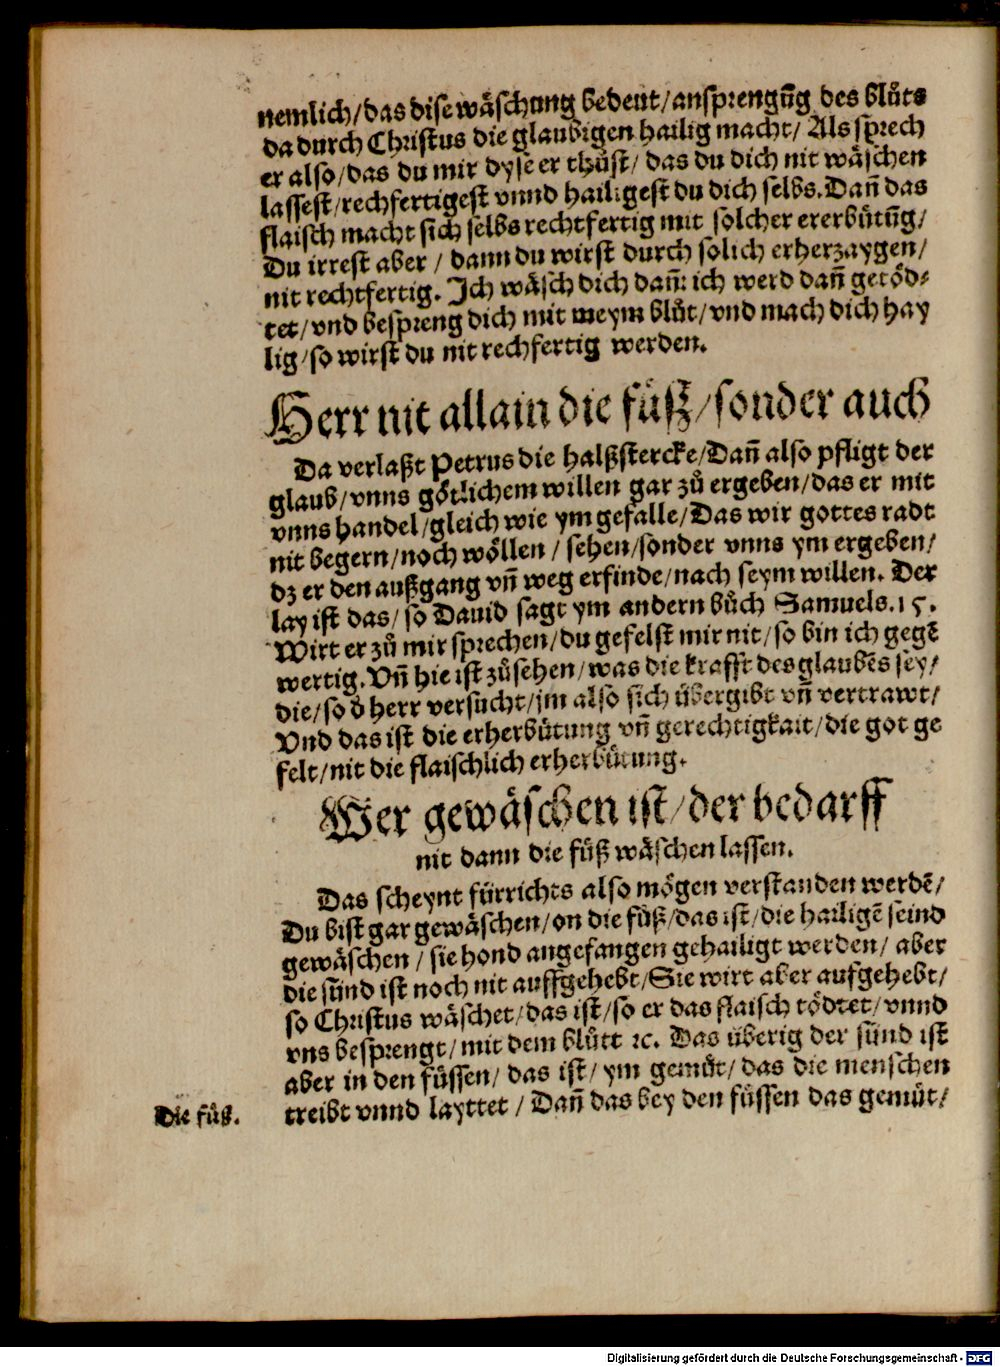 nemlich/das dise wäschung bedeut/ansprengūg des blůts
da durch Christus die glaubigen hailig macht/ Als sprech
er also/das du mir dyse er thůst/ das du dich nit wäschen
lassest/rechfertigest vnnd hailigest du dich selbs. Dañ das
flaisch macht sich selbs rechtfertig mit solcher ererbütūg/
Du irrest aber / dann du wirst durch solich erherzaygen/
nit rechtfertig. Ich wäsch dich dañ: ich werd dañ getöd⸗
tet/vnd bespreng dich mit meym blůt/vnd mach dich hay
lig/so wirst du nit rechfertig werden.
Herr nit allain die füß/sonder auch
Da verlaßt Petrus die halßstercke/Dañ also pfligt der
glaub/vnns götlichem willen gar zů ergeben/das er mit
vnns handel/gleich wie ym gefalle/Das wir gottes radt
nit begern/noch wöllen / sehen/sonder vnns ym ergeben/
dz er den außgang vñ weg erfinde/nach seym willen. Der
lay ist das/so Dauid sagt ym andern bůch Samuels.15.
Wirt er zů mir sprechen/du gefelst mir nit/so bin ich gegē
wertig. Vñ hie ist zůsehen/was die krafft des glaubēs sey/
die/so d̕ herr versůcht/jm also sich übergibt vñ vertrawt/
Vnd das ist die erherbütung vñ gerechtigkait/die got ge
felt/nit die flaischlich erherbütung.
Wer gewäschen ist/der bedarff
nit dann die füß wäschen lassen.
Das scheynt fürrichts also mögen verstanden werdē/
Du bist gar gewäschen/on die füß/das ist/die hailigē seind
gewäschen / sie hond angefangen gehailigt werden/ aber
die sünd ist noch nit auffgehebt/Sie wirt aber aufgehebt/
so Christus wäschet/das ist/so er das flaisch tödtet/vnnd
vns besprengt/mit dem blůtt ꝛc. Das überig der sünd ist
aber in den füssen/ das ist/ ym gemüt/ das die menschen
treibt vnnd layttet / Dañ das bey den füssen das gemüt/
Die füß.
Digitalisierung gefördert durch die Deutsche Forschungsgemeinschaft - DFG